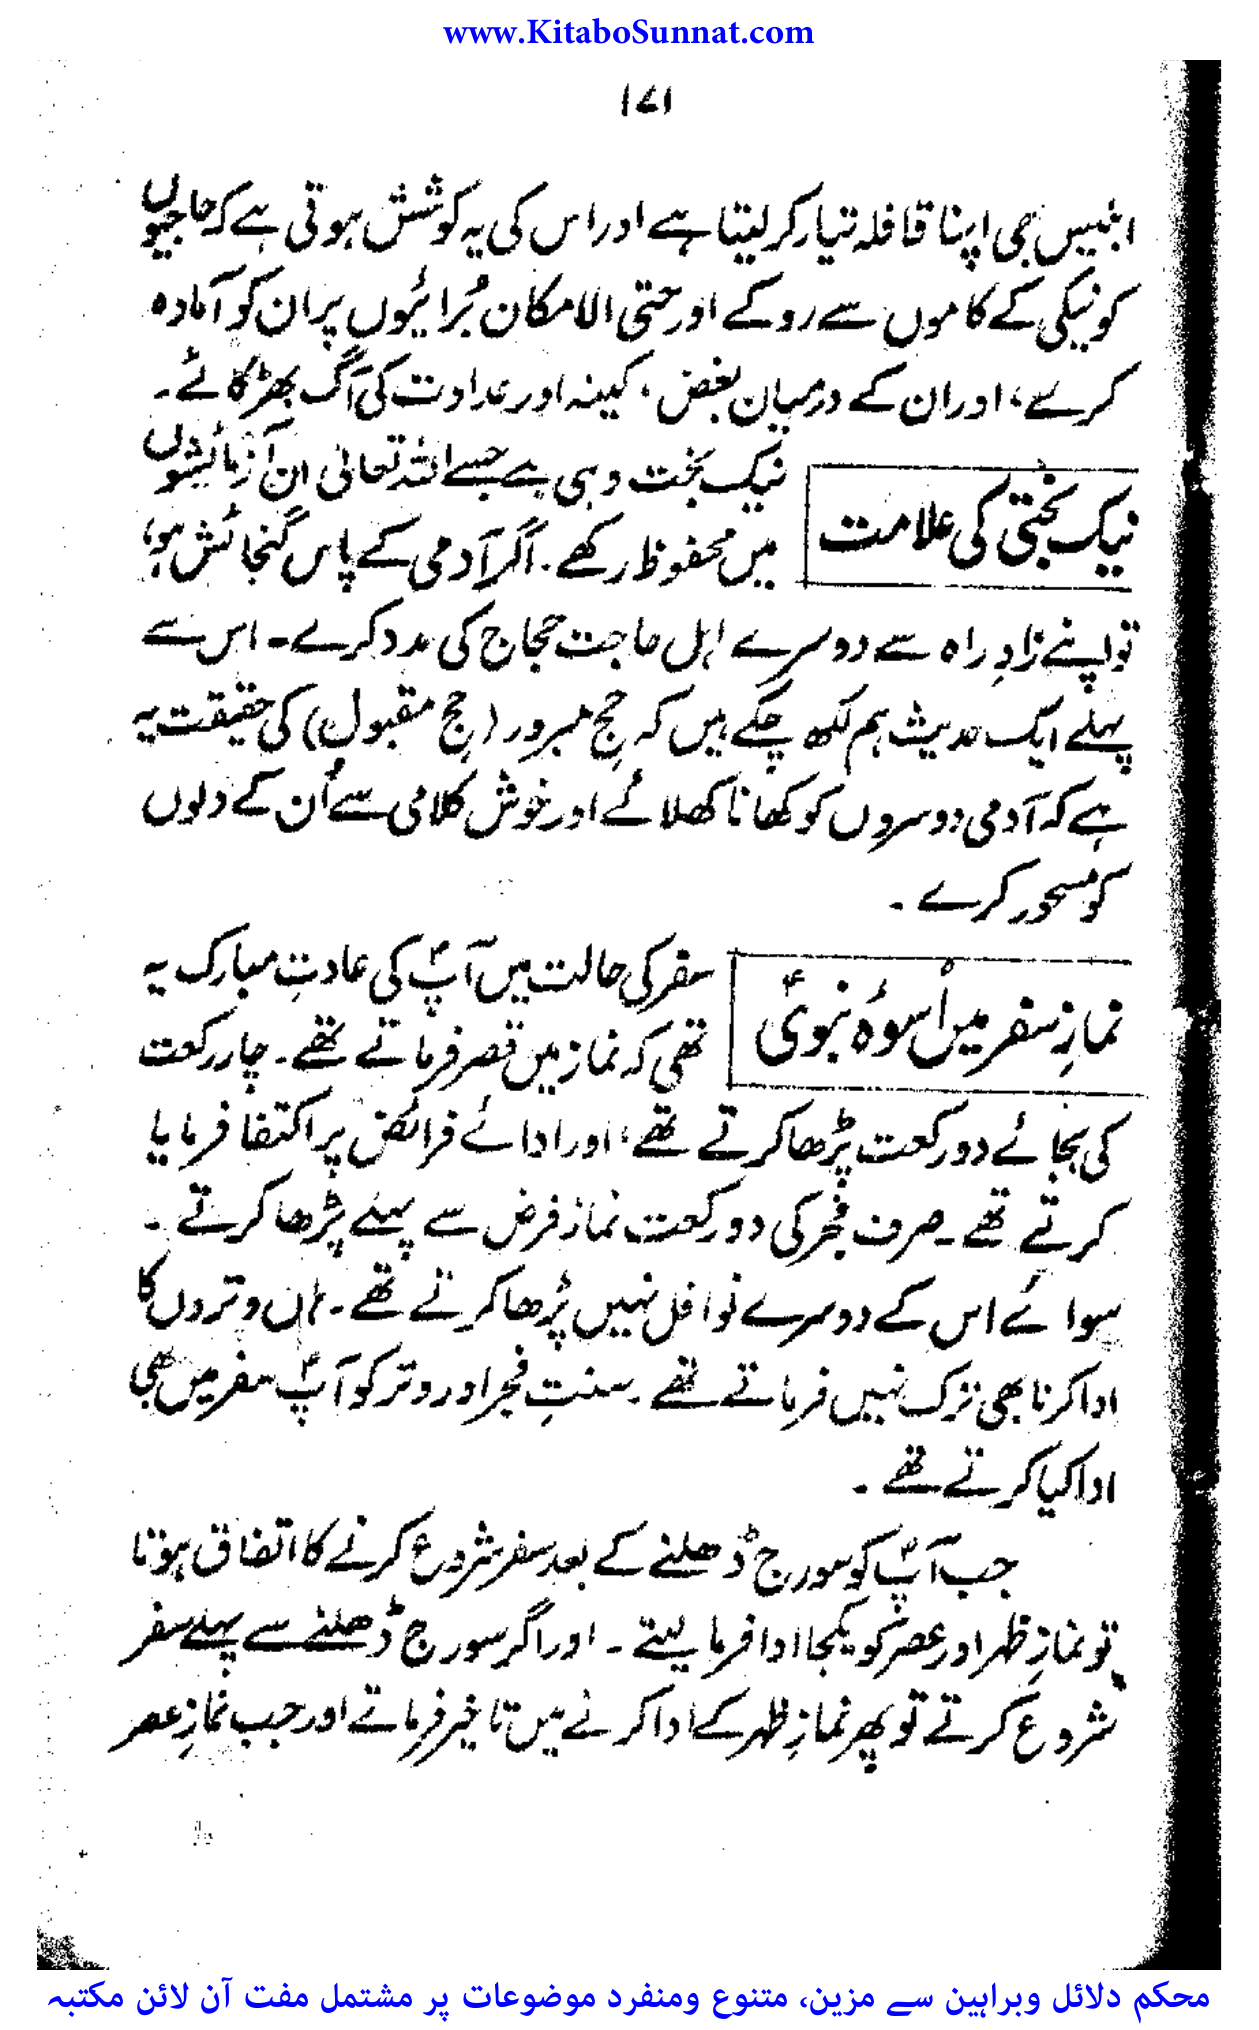 www.KitaboSunnat.com
۱۷۱
ابلیس بھی اپنا قافلہ تیار کر لیتا ہے اور اس کی یہ کوشش ہوتی ہے کہ حاجیوں
کو نیکی کے کاموں سے روکے اور حتی الامکان بُرائیوں پر ان کو آمادہ
کرے، اور ان کے درمیان بغض، کینہ اور عداوت کی آگ بھڑکائے۔
نیک بختی کی علامت
نیک بخت وہی ہے جسے اللہ تعالیٰ ان آزمائشوں
میں محفوظ رکھے۔ اگر آدمی کے پاس گنجائش ہو،
تو اپنے زادِ راہ سے دوسرے اہل حاجت حجاج کی مدد کرے۔ اس سے
پہلے ایک حدیث ہم لکھ چکے ہیں کہ حج مبرور (حج مقبول) کی حقیقت یہ
ہے کہ آدمی دوسروں کو کھانا کھلائے اور خوش کلامی سے اُن کے دلوں
کو مسحور کرے۔
نمازِ سفر میں اُسوۂ نبویؐ
سفر کی حالت میں آپؐ کی عادتِ مبارک یہ
تھی کہ نماز میں قصر فرماتے تھے۔ چار رکعت
کی بجائے دو رکعت پڑھا کرتے تھے، اور ادائے فرائض پر اکتفا فرمایا
کرتے تھے۔ صرف فجر کی دو رکعت نماز فرض سے پہلے پڑھا کرتے۔
سوائے اس کے دوسرے نوافل نہیں پڑھا کرتے تھے۔ ہاں وتروں کا
ادا کرنا بھی ترک نہیں فرماتے تھے۔ سنتِ فجر اور وتر کو آپؐ سفر میں بھی
ادا کیا کرتے تھے۔
جب آپؐ کو سورج ڈھلنے کے بعد سفر شروع کرنے کا اتفاق ہوتا
تو نمازِ ظہر اور عصر کو یکجا ادا فرما لیتے۔ اور اگر سورج ڈھلنے سے پہلے سفر
شروع کرتے تو پھر نمازِ ظہر کے ادا کرنے میں تاخیر فرماتے اور جب نمازِ عصر
محکم دلائل وبراہین سے مزین، متنوع ومنفرد موضوعات پر مشتمل مفت آن لائن مکتبہ